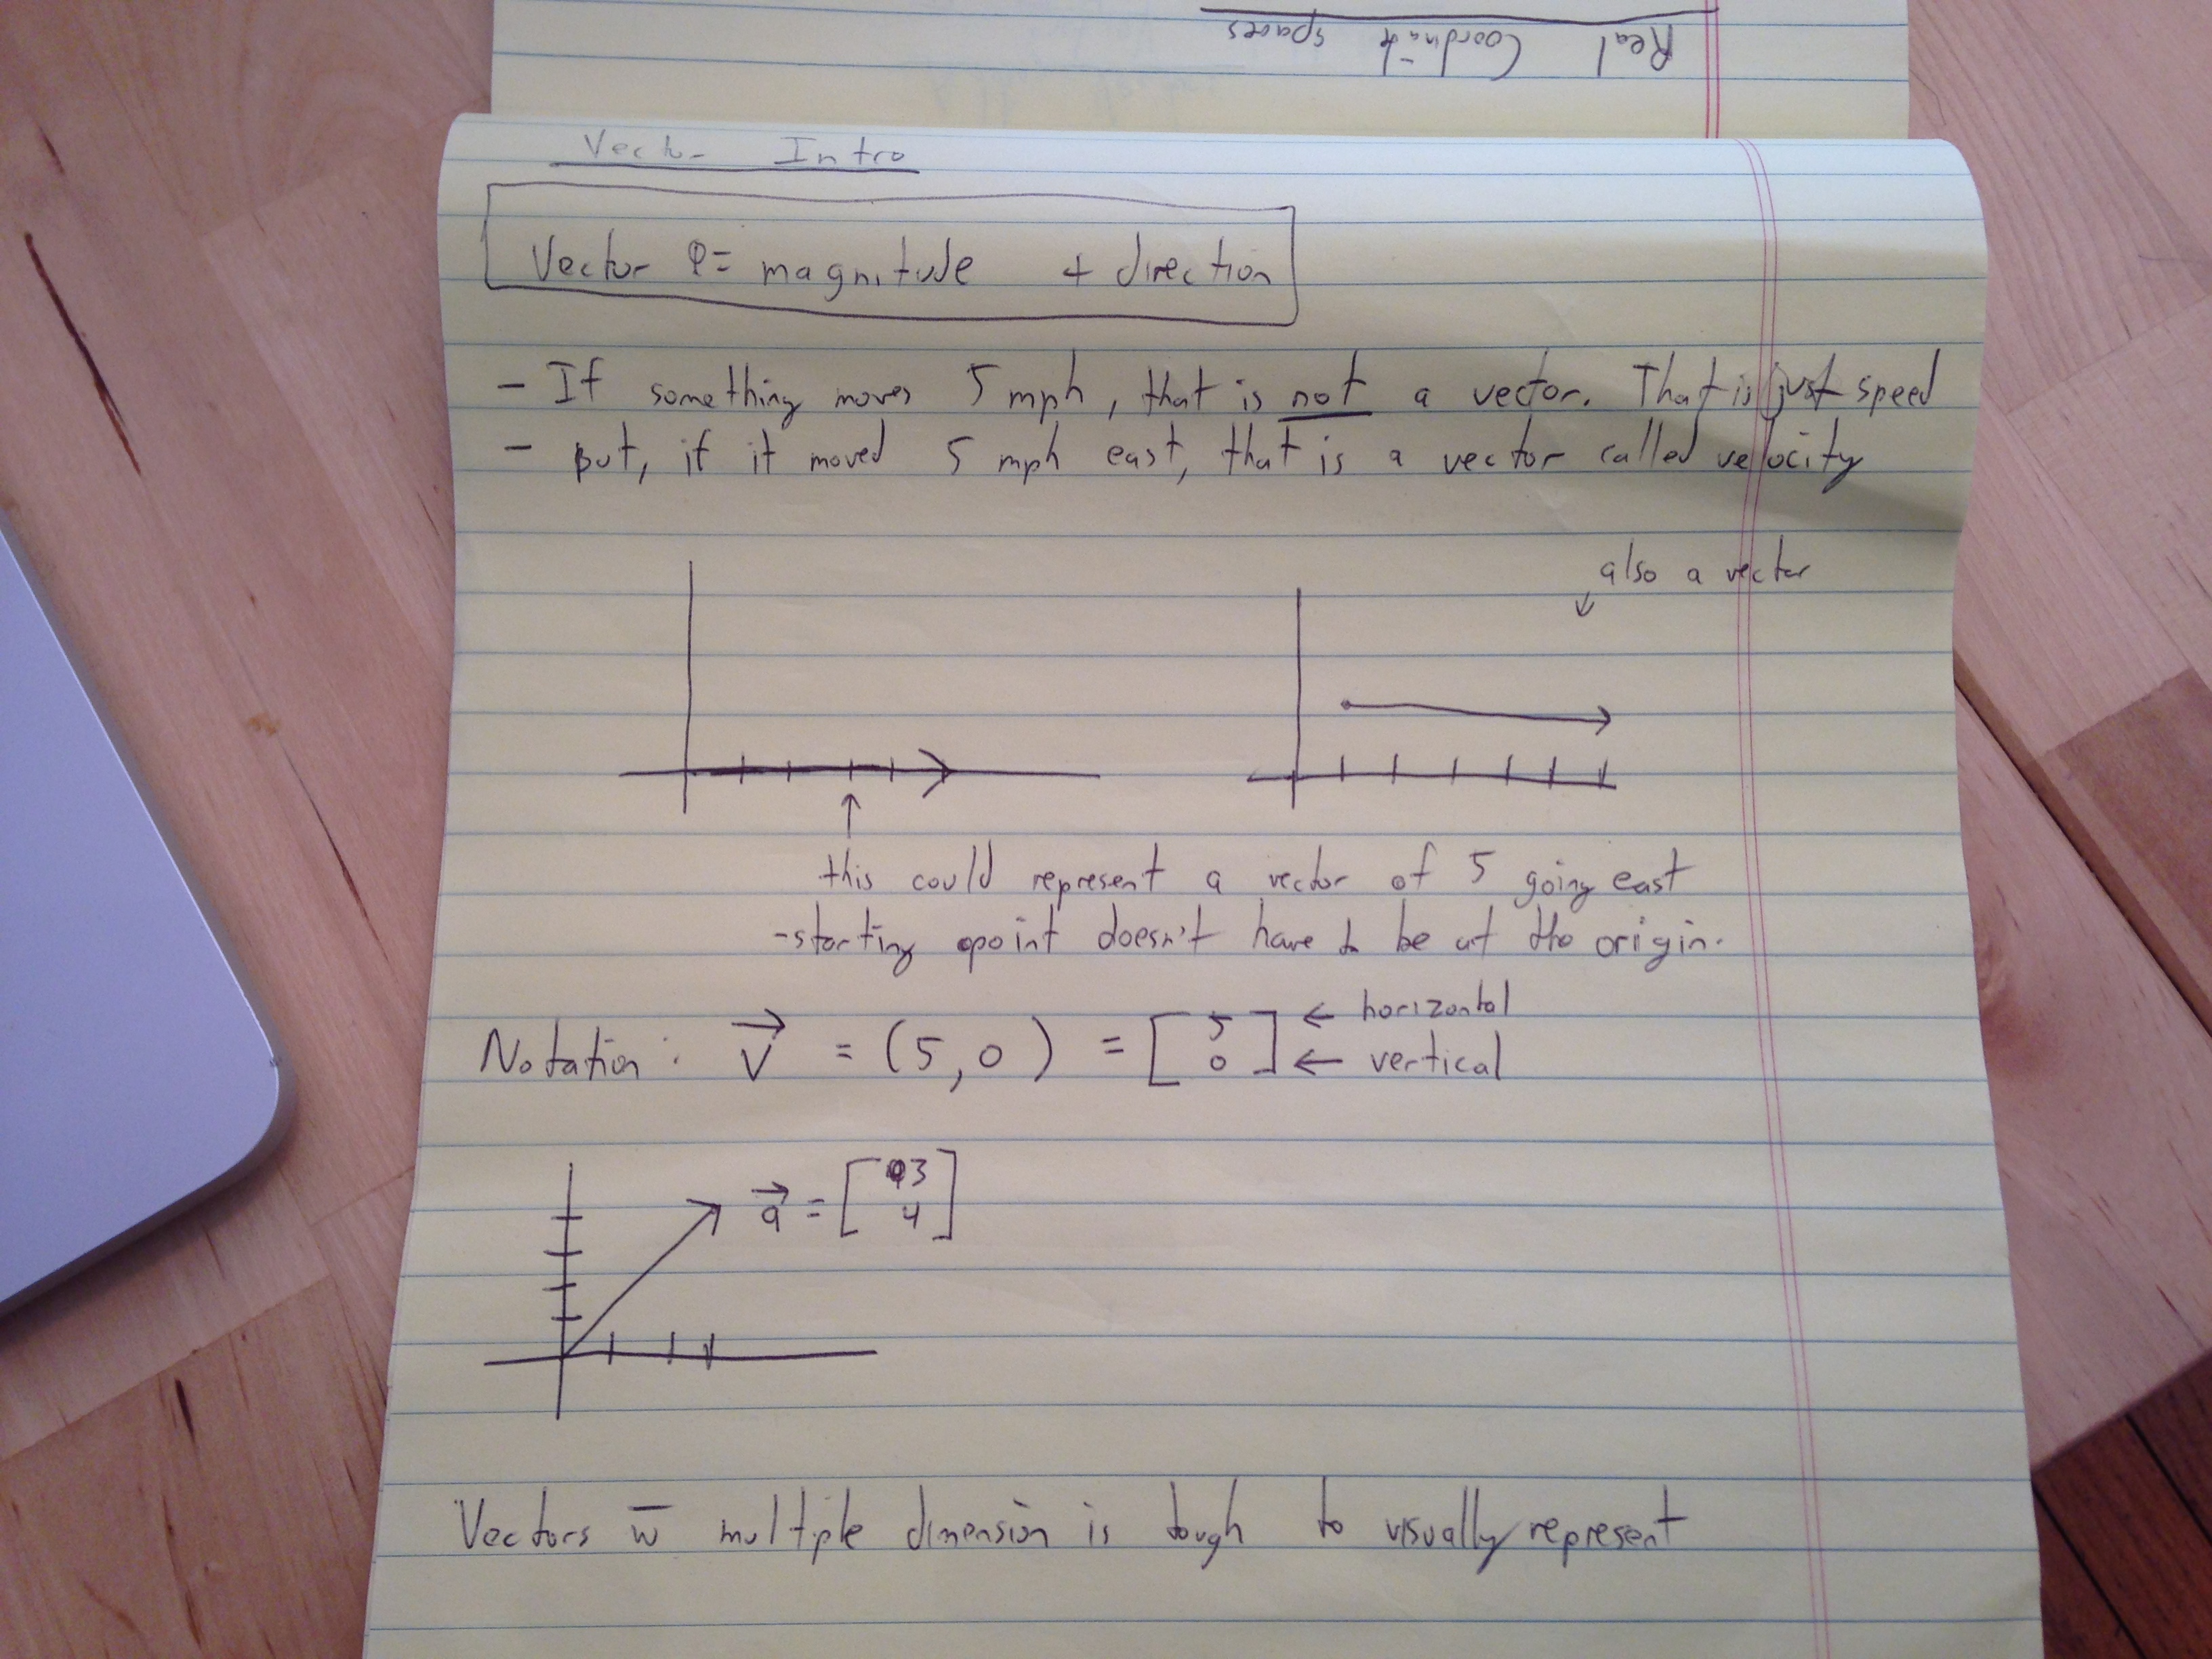 Real Coordinate spaces
Vector Intro
Vector = magnitude + direction
- If something moves 5 mph, that is not a vector. That is just speed
- but, if it moved 5 mph east, that is a vector called velocity
also a vector
this could represent a vector of 5 going east
- starting point doesn't have to be at the origin.
Notation: v⃗ = (5, 0) = [5 0] ← horizontal ← vertical
a⃗ = [3 4]
Vectors w multiple dimension is tough to visually represent